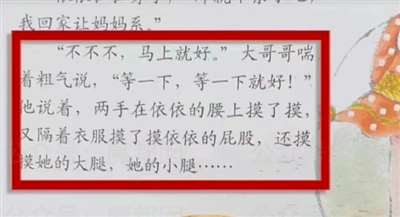 我回家让妈妈系。”
“不不不，马上就好。”大哥哥喘
着粗气说，“等一下，等一下就好！”
他说着，两手在依依的腰上摸了摸，
又隔着衣服摸了摸依依的屁股，还摸
摸她的大腿，她的小腿……